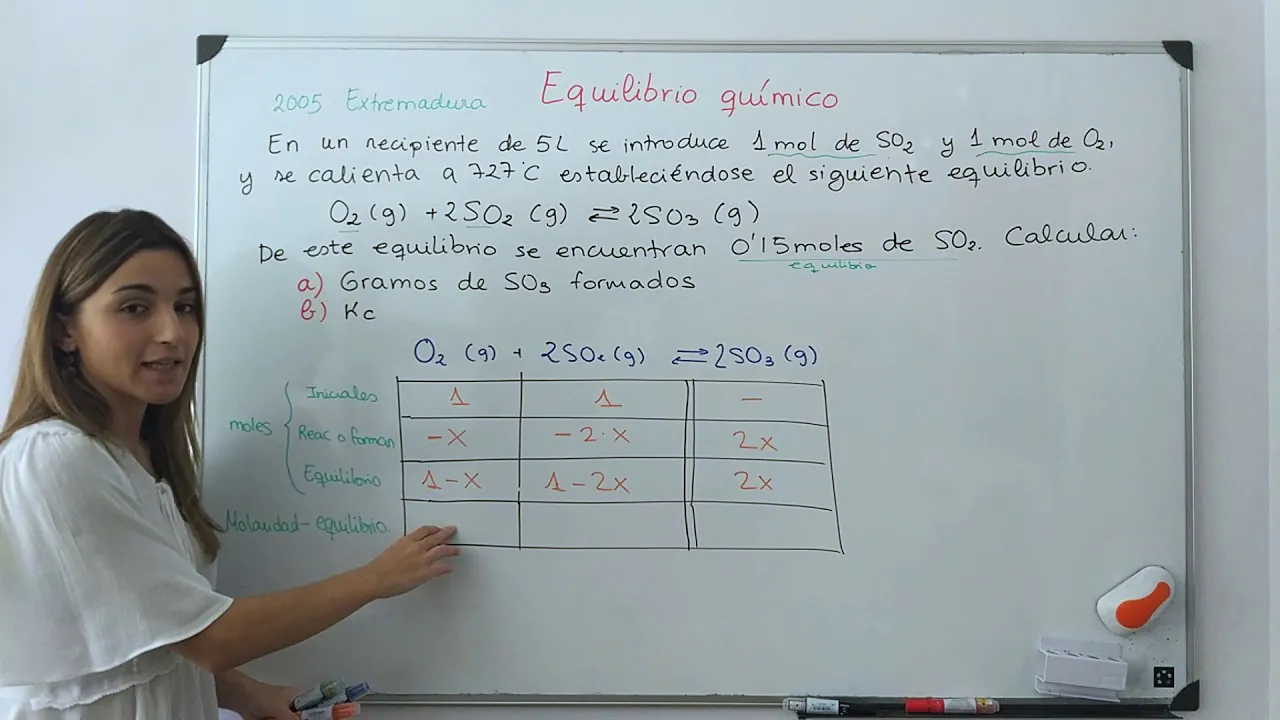 2005 Extremadura Equilibrio químico
En un recipiente de 5L se introduce 1 mol de SO₂ y 1 mol de O₂,
y se calienta a 727°C estableciéndose el siguiente equilibrio.
O₂ (g) + 2SO₂ (g) ⇌ 2SO₃ (g)
De este equilibrio se encuentran 0'15 moles de SO₂. Calcular:
equilibrio
a) Gramos de SO₃ formados
b) Kc
O₂ (g) + 2SO₂ (g) ⇌ 2SO₃ (g)
Iniciales 1 1 —
moles Reac o forman -x -2·x 2x
Equilibrio 1-x 1-2x 2x
Molaridad-equilibrio